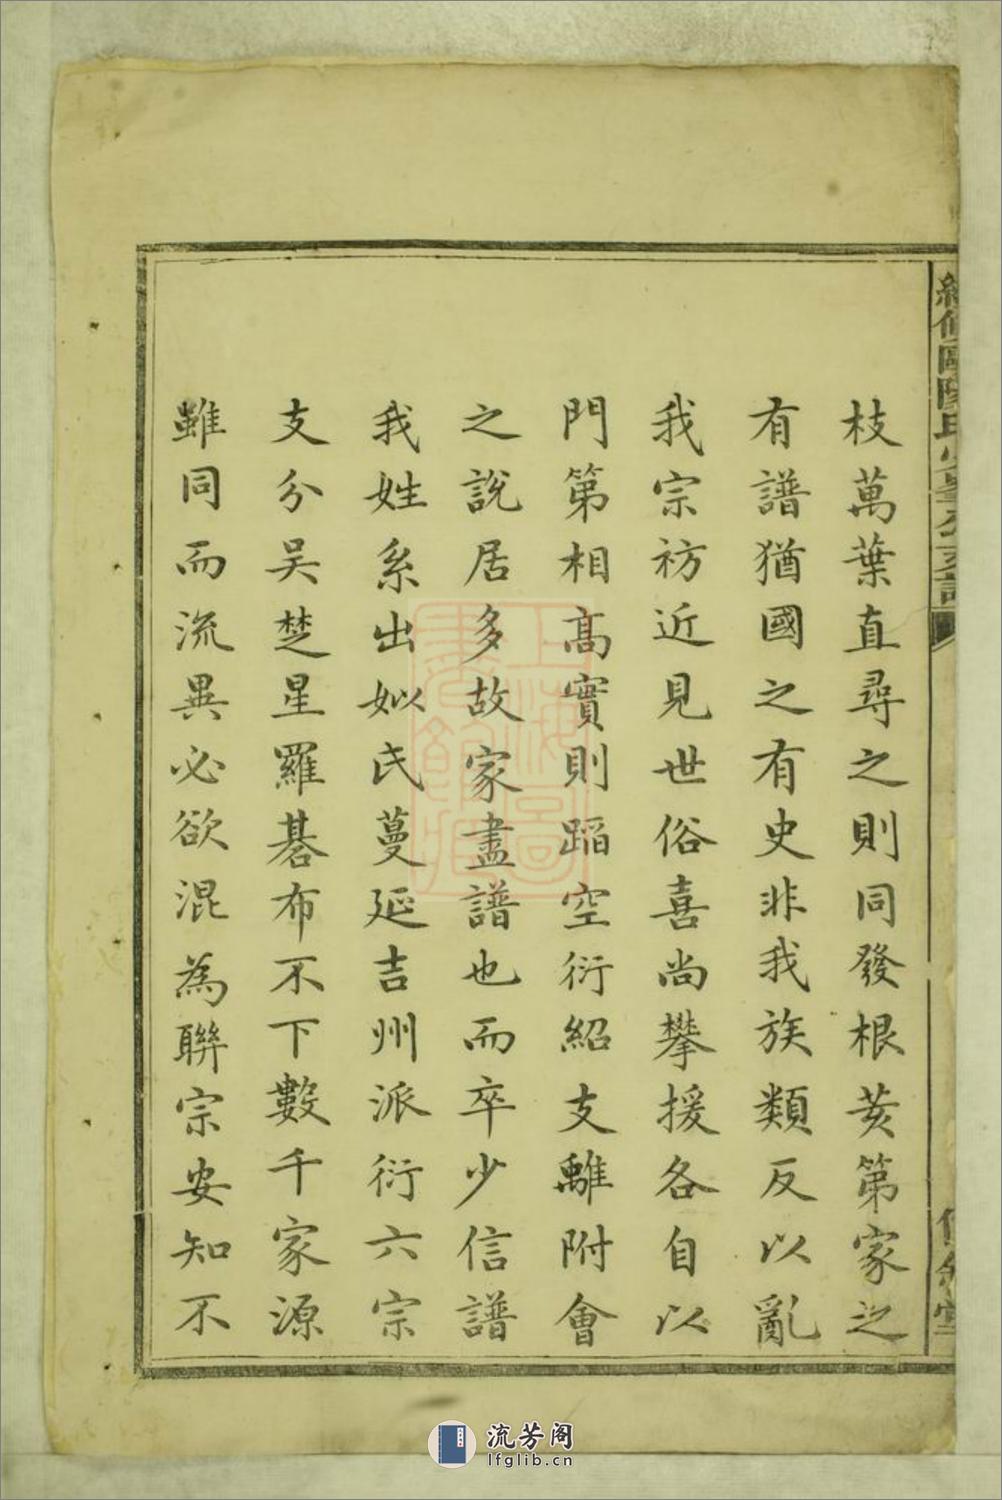 枝萬葉直尋之則同發根荄第家之
有譜猶國之有史非我族類反以亂
我宗祊近見世俗喜尚攀援各自以
門第相高實則蹈空衍紹支離附會
之說居多故家盡譜也而卒少信譜
我姓系出姒氏蔓延吉州派衍六宗
支分吴楚星羅碁布不下數千家源
雖同而流異必欲混為聯宗安知不
上海圖書館藏
流芳阁
lfglib.cn